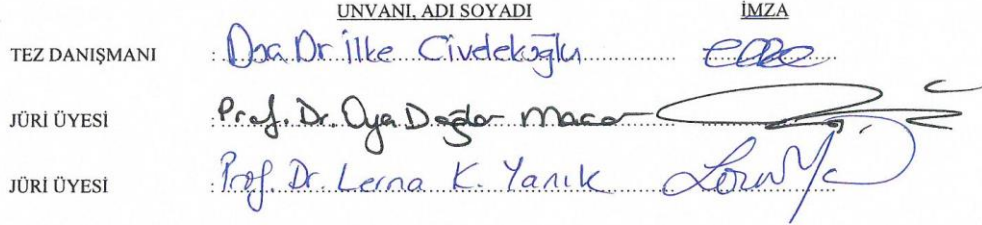 UNVANI, ADI SOYADI İMZA
TEZ DANIŞMANI : Doç. Dr. İlke Civelekoğlu
JÜRİ ÜYESİ : Prof. Dr. Oya Dağlar Macar
JÜRİ ÜYESİ : Prof. Dr. Lerna K. Yanık